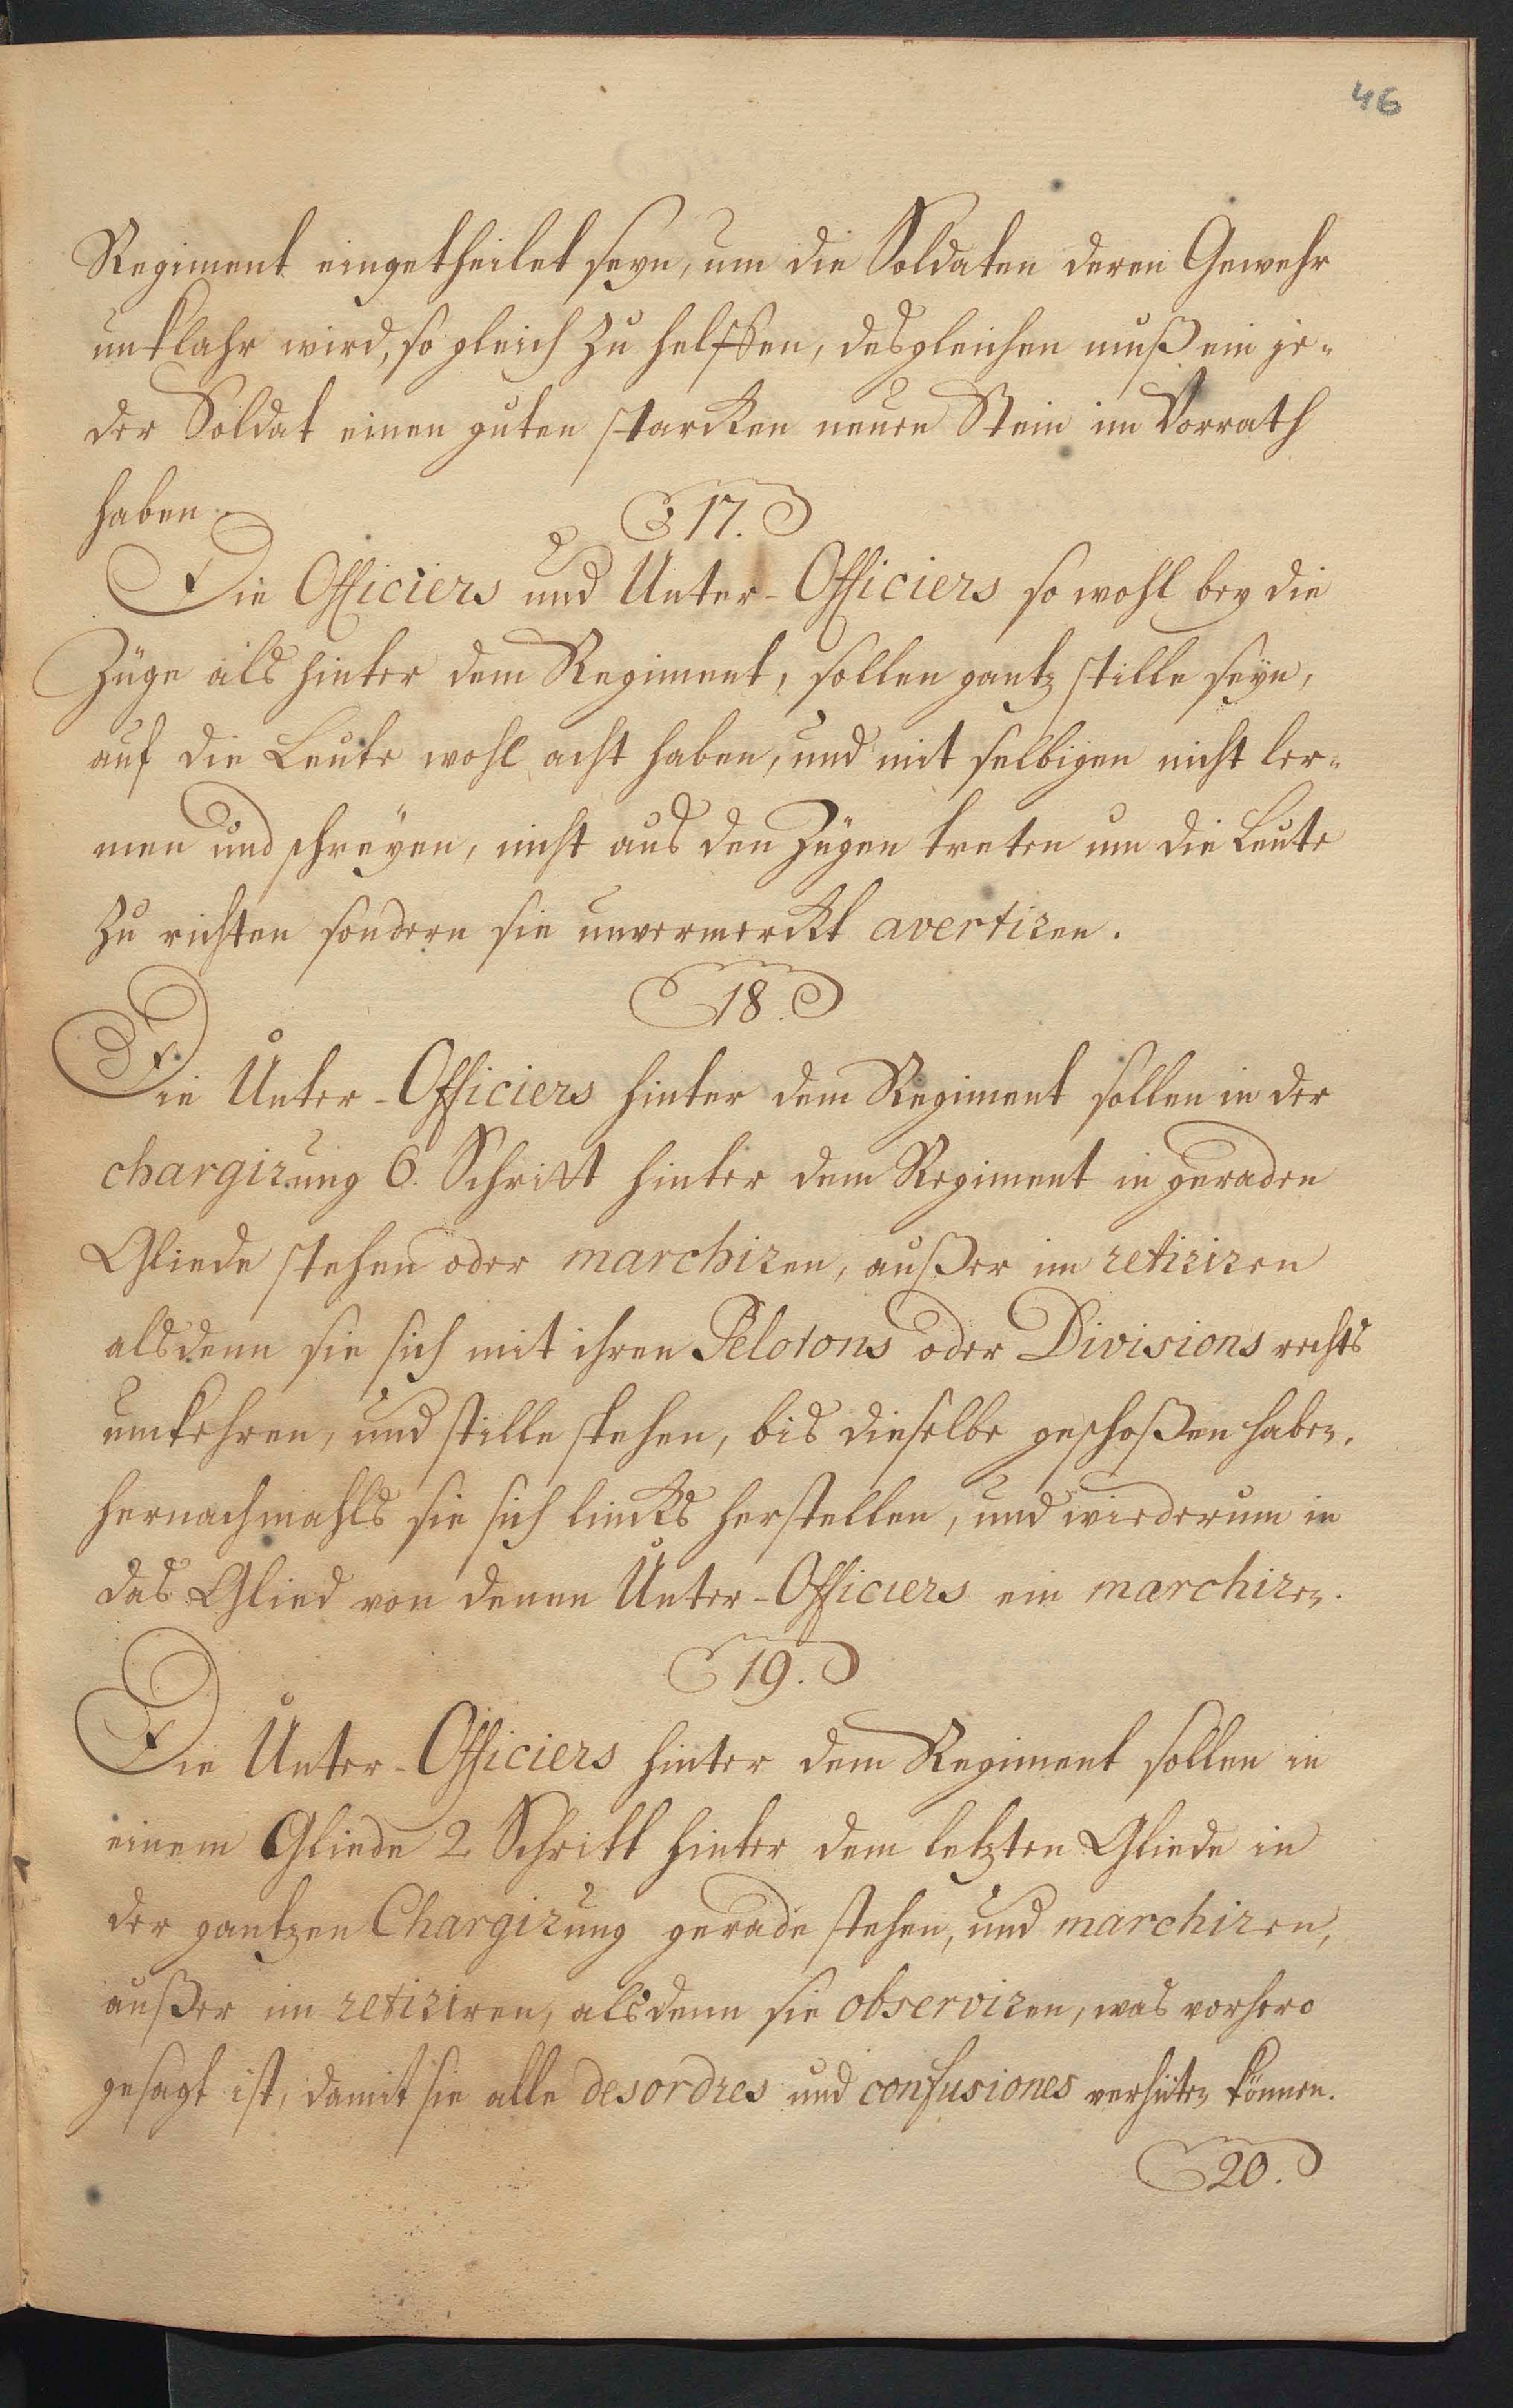 46
Regiment eingetheilet seyn, um die Soldaten deren Gewehr
unklahr wird, so gleich zu helffen, desgleichen muß ein je-
der Soldat einen guten starcken neuen Stein im Vorrath
haben.
17.
Die Officiers und Unter-Officiers so wohl bey die
Züge als hinter dem Regiment, sollen gantz stille seyn,
auf die Leute wohl acht haben, und mit selbigen nicht ler-
men und schreyen, nicht aus den Zügen treten um die Leute
zu richten sondern sie unvermerckt avertiren.
18.
Die Unter-Officiers hinter dem Regiment sollen in der
chargirung 6. Schritt hinter dem Regiment in geraden
Gliede stehen oder marchiren, außer im retiriren
alsdenn sie sich mit ihren Pelotons oder Divisions rechts
umkehren, und stille stehen, bis dieselbe geschoßen haben,
hernachmahls sie sich lincks herstellen, und wiederum in
das Glied von denen Unter-Officiers ein marchiren.
19.
Die Unter-Officiers hinter dem Regiment sollen in
einem Gliede 2 Schritt hinter dem letzten Gliede in
der gantzen Chargirung gerade stehen, und marchiren,
außer im retiriren, alsdenn sie observiren, was vorhero
gesagt ist, damit sie alle desordres und confusiones verhüten können.
20.